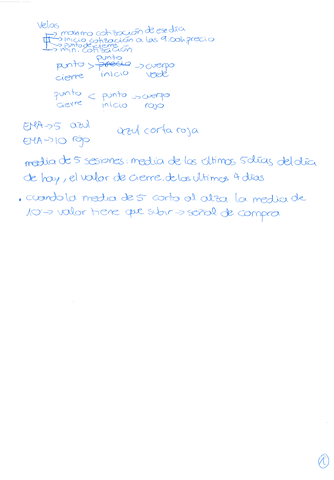 Velas
→ máximo cotización de ese día
→ inicio cotización a las 9:00h precio
→ punto de cierre
→ min. cotización
punto cierre > punto inicio → cuerpo verde
punto cierre < punto inicio → cuerpo rojo
EMA→5 azul
EMA→10 rojo
azul corta roja
media de 5 sesiones: media de los últimos 5 días del día
de hoy, el valor de cierre de los últimos 4 días
• cuando la media de 5 corta al alza la media de
10 → valor tiene que subir → señal de compra
1